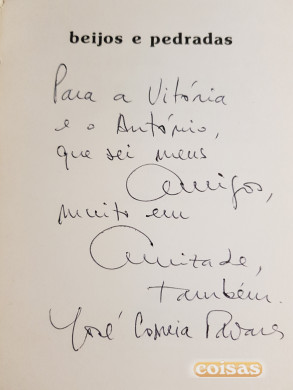 beijos e pedradas
Para a Vitória
e o António,
que sei meus
Amigos,
muito em
Amizade,
também.
José Correia Tavares
coisas